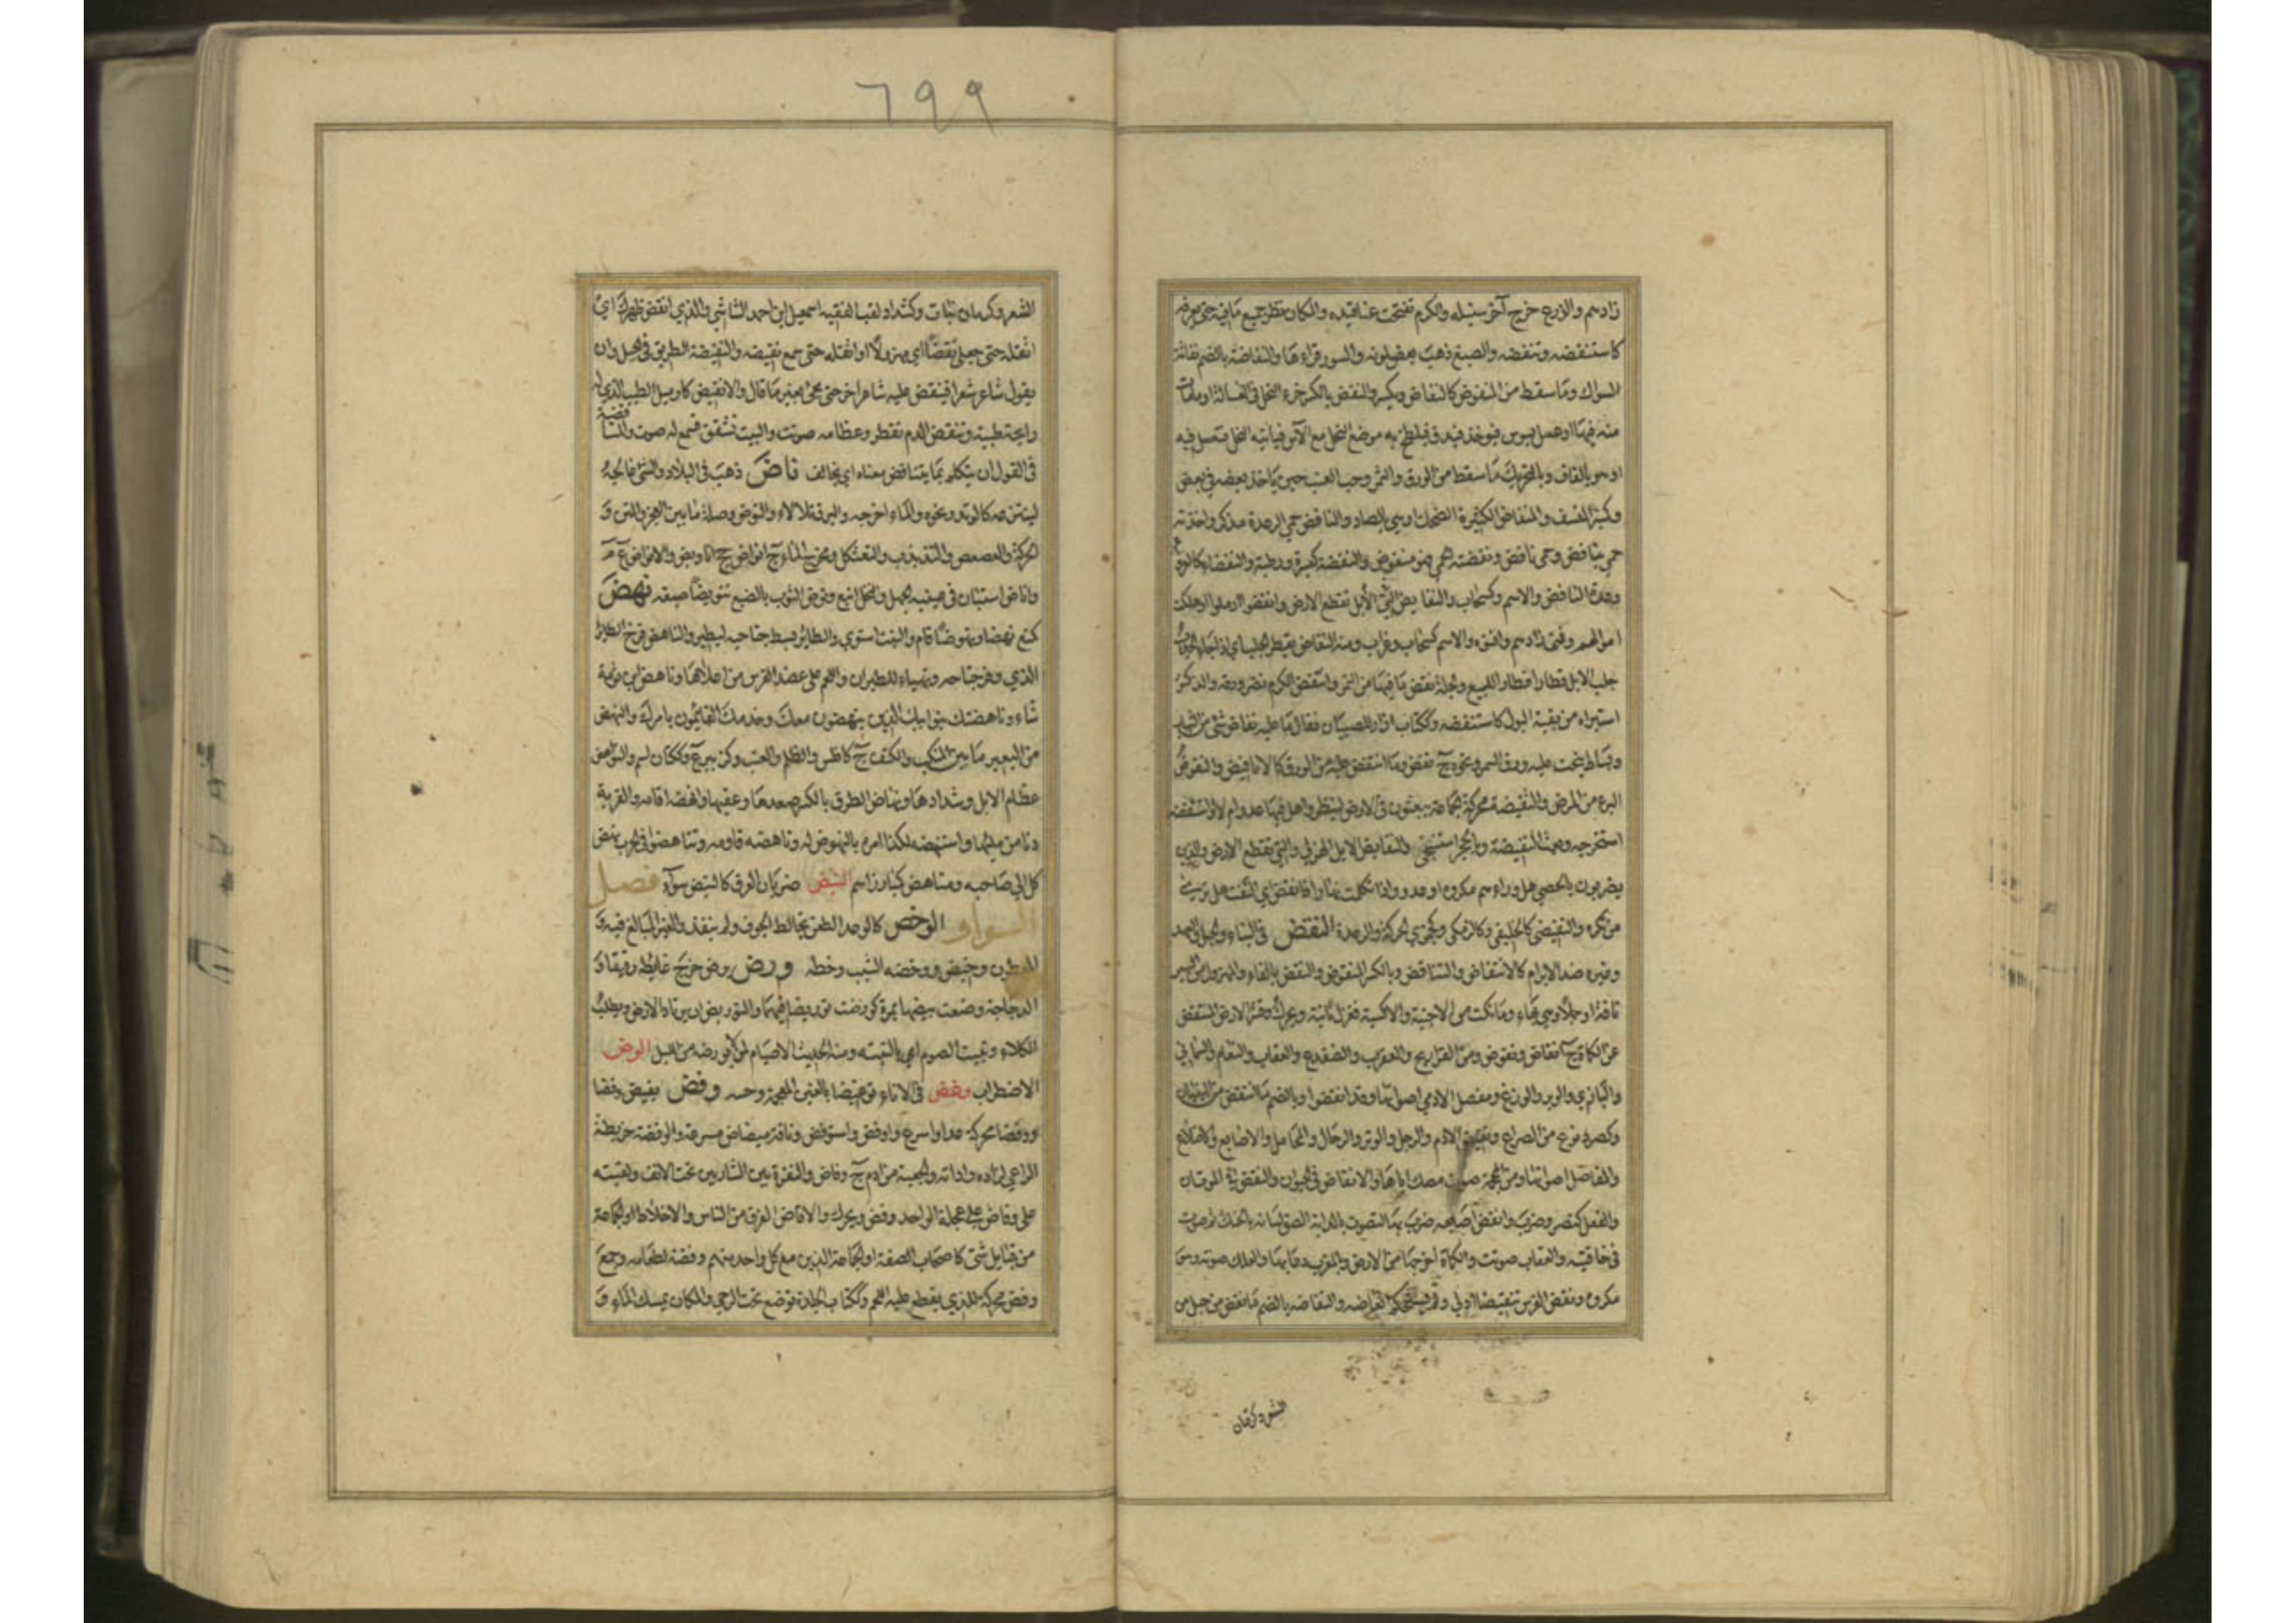 زادهم والزرع خرج آخر سنبله والكرم تفتحت عناقيده والمكان نظر جميع ما فيه حتى يعرفه
كاستنفضه وتنفضه والصبغ ذهب بعض لونه والسور قراءها والنفاضة بالضم نفاثة
السواك وما سقط من المنفوض كالنفاض ويكسر والنفض بالكسر خرء النحل في العسالة او ما مات
منه فيها او عسل يسوس فيوخذ فيدق فيلطخ به موضع النحل مع الآس فياتيه النحل فتعسل فيه
او هو بالقاف وبالتحريك ما سقط من الورق والثمر وحب العنب حين ياخذ بعضه في بعض
وكمنبر المنسف والمنفاض الكثيرة الضحك او هي بالصاد والنافض حمى الرعدة مذكر واخذته
حمى بنافض وحمى نافض ونفضته الحمى فهو منفوض والنفضة كبسرة ورطبة والنفضاء كالعرواء
رعدة النافض والاسم وكسحاب والنفايض التي الابل تقطع الارض وانفضوا ارملوا او هلكت
اموالهم وفنى زادهم وافنوه والاسم كسحاب وغراب ومنه النفاض يقطر الجلب اي اذا جاء الجدب
جلب الابل قطارا قطارا للبيع والجلة نفض ما فيها من التمر وانتفض الكرم نضر ورقه والذكر
استبراه من بقية البول كاستنفضه وككتاب ازار للصبيان فقال ما عليه نفاض شئ من الثياب
وبساط ينحت عليه ورق السمر ونحوه ج نفض وما انتفض عليه من الورق كالانافيض والنفوض
البرء من المرض والنفيضة محركة الجماعة يبعثون في الارض لينظروا هل فيها عدو ام لا واستنفضه
استخرجه وبعث النفيضة وبالحجر استنجى والنفايض الابل الهزلى والتي تقطع الارض والذين
يضربون بالحصى هل وراءهم مكروه او عدو واذا تكلمت نهارا فانفض اي التفت هل ترى من
من تكره والنفيضى كالخليفى وكالزمكى وكجمزى الحركة والرعدة النقض في البناء والحبل والعهد
وغيره ضد الابرام كالانتقاض والتناقض وبالكسر المنقوض والنفض بالفاء والمهزول من السير
ناقة او جملا وهي بهاء وما نكث من الاخبية والاكسية فغزل ثانية ويحرك وقشر الارض المنتقض
عن الكماة ج انقاض ونقوض ومن الفراريج والعقرب والضفدع والعقاب والنعام والسمانى
والبازي والوبر والوزغ ومفصل الادمي اصواتها وقد انقضوا وبالضم ما انتقض من البنيان
وكصرد نوع من الصراع ونقيض الادم والرحل والوتر والرحال والمحامل والاصابع والاضلاع
والمفاصل اصواتها ومن المحجمة صوت مصك اياها والانقاض في الحيوان والنقض في الموتان
والفعل كنصر وضرب وانقض اصابعه ضرب بها لتصوت بالدابة الصق لسانه بالحنك ثم صوت
في حافتيه والعقاب صوتت والكماة اخرجها من الارض والمعزى دعا بها والعلك صوته وهو
مكروه ونقض الفرس تنقيضا ادلى ولم يستحكم انعاظه والنقاضة بالضم ما نقض من حبل من
الشعر وكرمان
٦٩٩
الشعر وكرمان نبات وكشداد لقب الفقيه اسمعيل ابن احمد الشاشي والذي انقض ظهرك اي
اثقله حتى جعله نقضا اي مهزولا او اثقله حتى سمع نقيضه والنقيضة الطريق في الجبل وان
يقول شاعر شعرا فينقض عليه شاعر اخر حتى يجئ بغير ما قال والانقيض كازميل الطيب الذي له
رايحة طيبة وتنقض الدم تقطر وعظامه صوتت والبيت تشقق فسمع له صوت والمناقضة
في القول ان يتكلم بما يتناقض معناه اي يخالف ناض ذهب في البلاد والشئ عالجه
لينتزعه كالوتد ونحوه والماء اخرجه والبرق تلالا والنوض وصلة ما بين العجز والمتن و
الحركة والعصعص والتذبذب والتعثكل ومخرج الماء ج انواض جج اناويض والانواض ع م
واناض استبان في عينيه الجهل والنخل اينع ونوض الثوب بالصبغ تنويضا صبغه نهض
كمنع نهضا ونهوضا قام والنبت استوى والطائر بسط جناحيه ليطير والناهض فرخ الطائر
الذي وفر جناحه وتهياء للطيران واللحم على عضد الفرس من اعلاها وناهض ابن ثومة
شاعر وناهضتك بنو ابيك الذين ينهضون معك وخدمك القائمون بامرك والنهض
من البعير ما بين المنكب والكتف ج كافلس والظلم والعتب وكزبير ع وككتان اسم والنواهض
عظام الابل وشدادها ونهاض الطرق بالكسر صعدها وعقبها وانهضه اقامه والقربة
دنا من مليها واستنهضه لكذا امره بالنهوض له وناهضه قاومه وتناهضوا في الحرب نهض
كل الى صاحبه ومناهض كمبارز اسم النيض ضربان العرق كالنبض سواء فصل
الواو الوخض كالوعد الطعن يخالط الجوف ولم ينفذ والغير المبالغ فيه و
المطعون وخيض ووخضه الشيب وخطه ورض يرض خرج غايطه رقيقا و
الدجاجة وضعت بيضها بمرة كورضت توريضا فيهما والتوريض ان يرتاد الارض ويطلب
الكلاء وتبييت الصوم اي بالنية ومنه الحديث لا صيام لمن لم يورضه من الليل الوض
الاضطرار وغض في الاناء توغيضا بالغين المعجمة دحسه وفض يفيض وفضا
ووفضا محركة عدا واسرع واوفض واستوفض وناقة ميفاض مسرعة والوفضة خريطة
الراعي لزاده واداته والجعبة من ادم ج وفاض والنقرة بين الشاربين تحت الانف ولقيته
على وفاض على عجلة الواحد وفض ويحرك والاوفاض الفرق من الناس والاخلاط او الجماعة
من قبايل شتى كاصحاب الصفة او الجماعة الذين مع كل واحد منهم وفضة لطعامه وجمع
وفض محركة للذي يقطع عليه اللحم وككتاب الجلدة توضع تحت الرحى والمكان يمسك الماء و